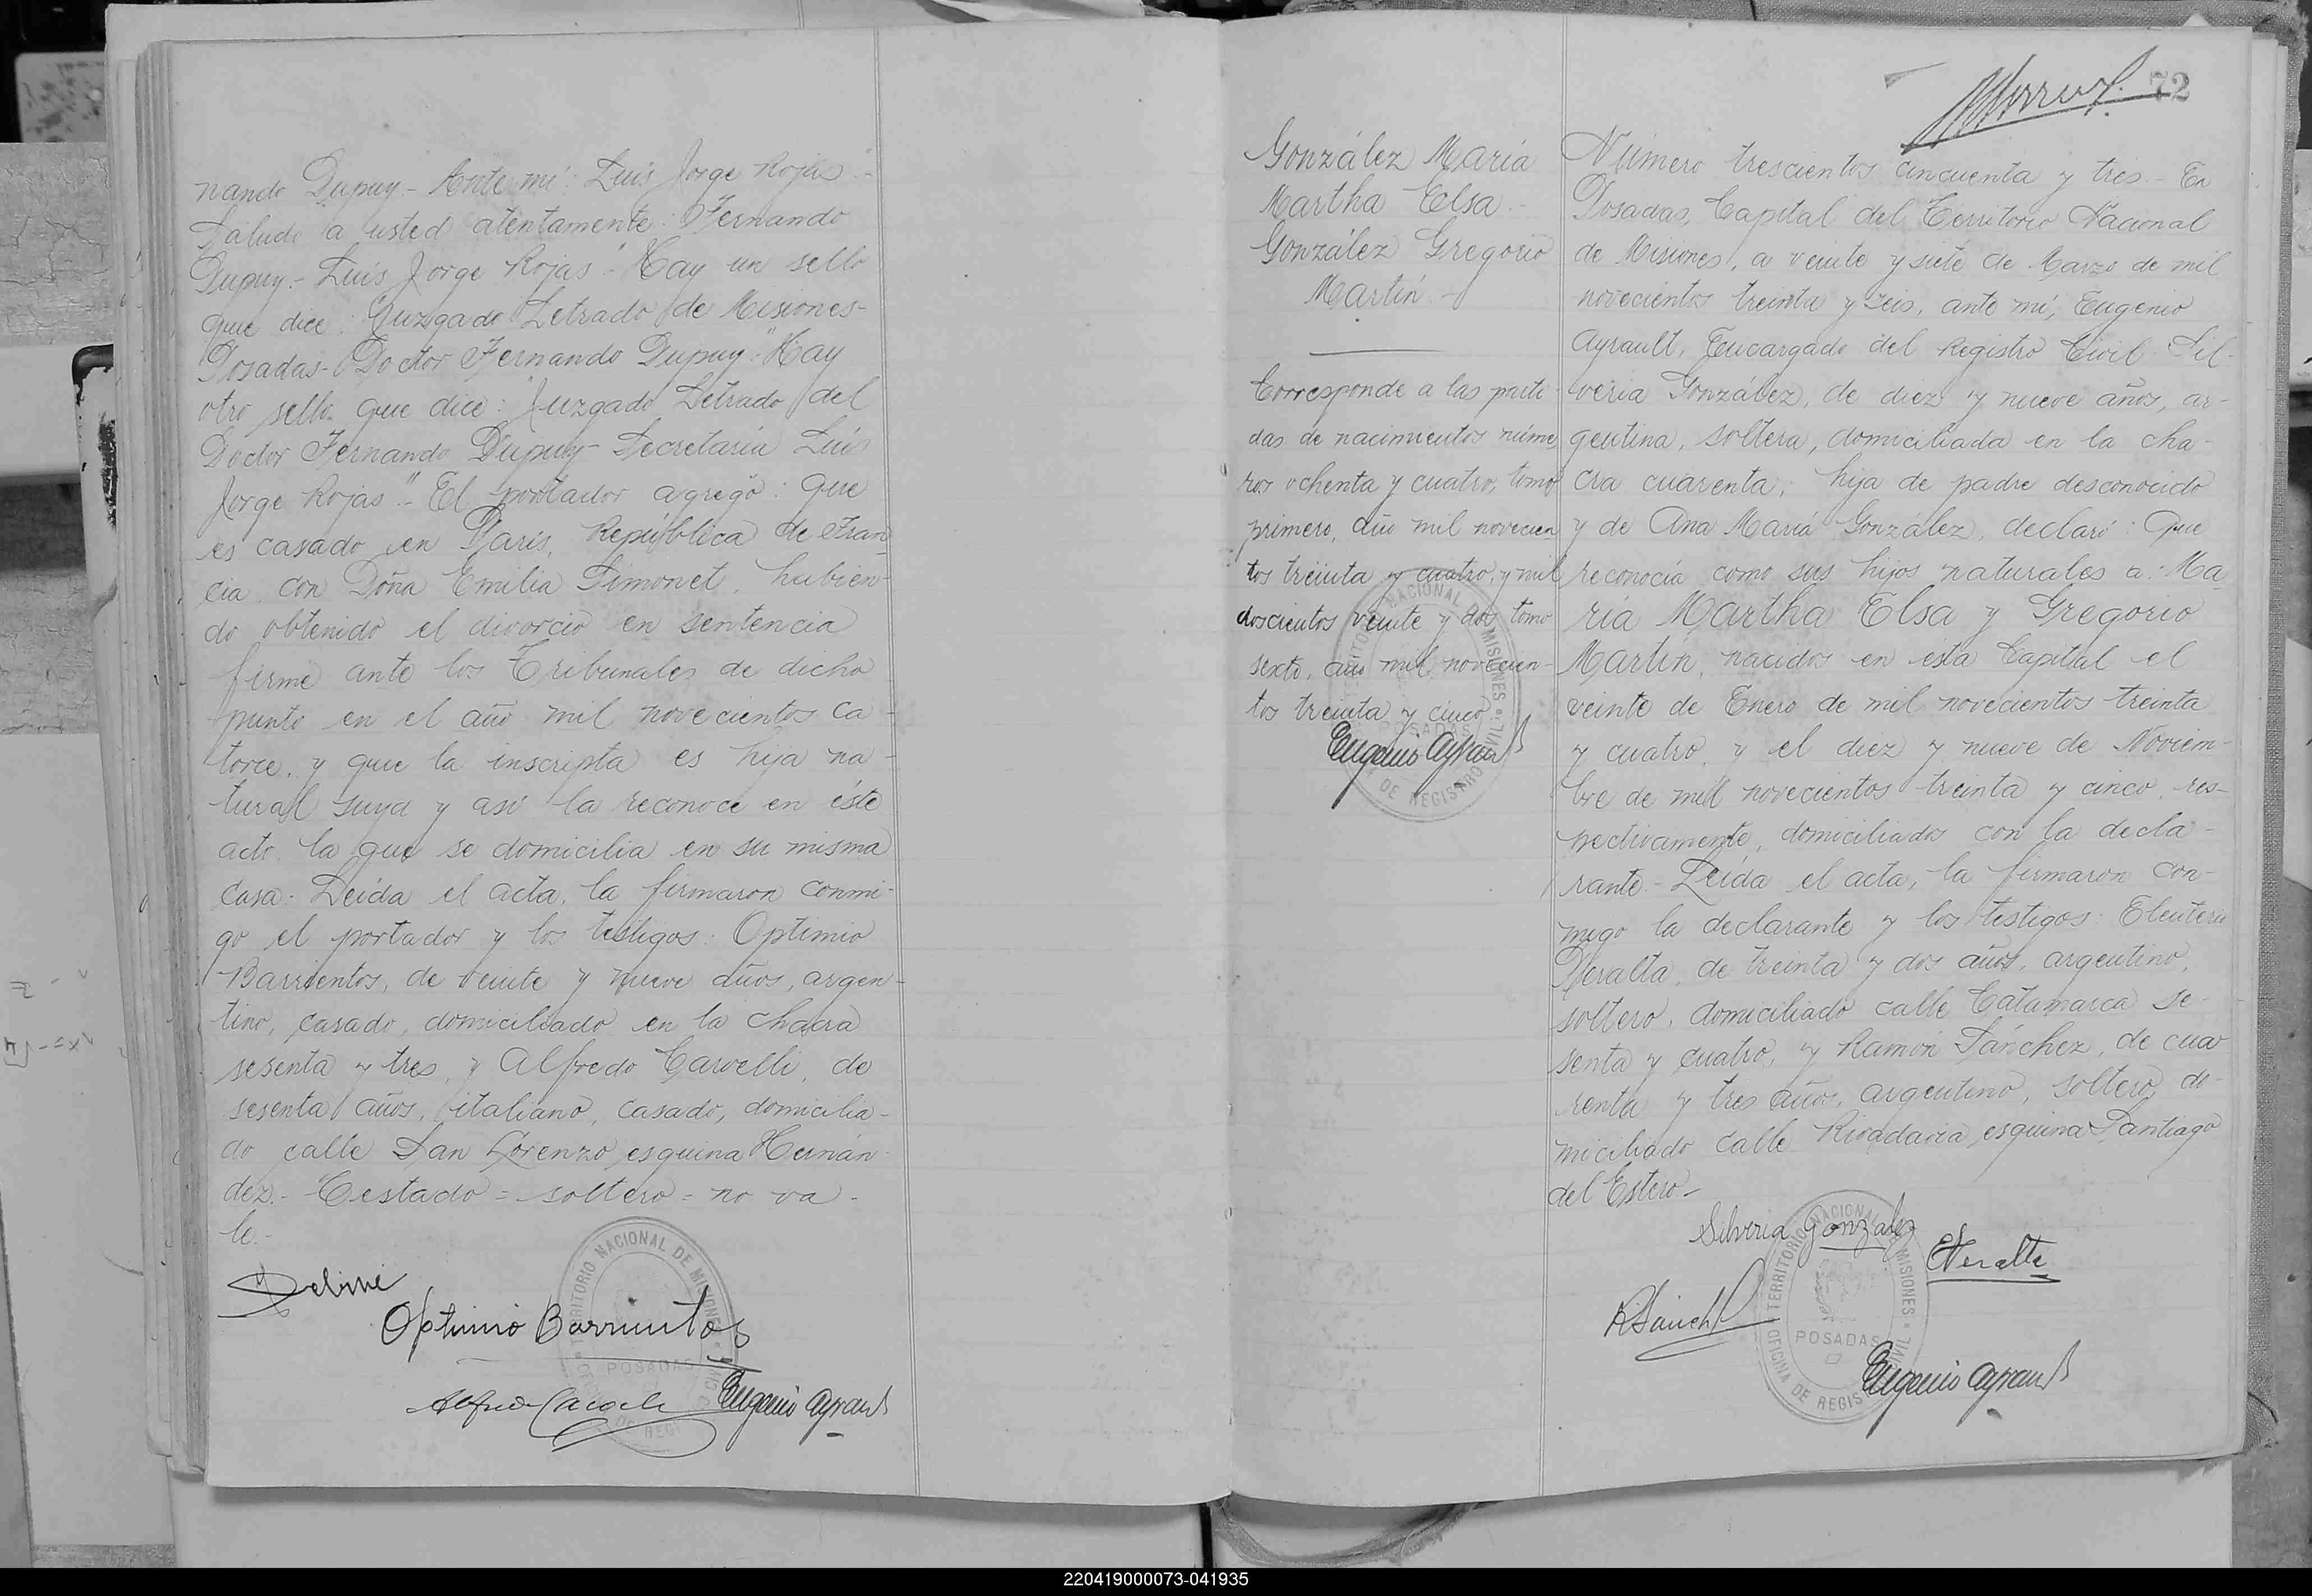 nando Dupuy.- Ante mí: Luis Jorge Rojas".-
Saludo a usted atentamente: Fernando
Dupuy.- Luis Jorge Rojas".- Hay un sello
que dice: "Juzgado Letrado de Misiones-
Posadas- Doctor Fernando Dupuy". Hay
otro sello que dice: "Juzgado Letrado del
Doctor Fernando Dupuy- Secretaría Luis
Jorge Rojas".- El portador agregó: Que
es casado en París, República de Fran-
cia, con Doña Emilia Simonet, habien-
do obtenido el divorcio en sentencia
firme ante los Tribunales de dicho
punto en el año mil novecientos ca-
torce, y que la inscripta es hija na-
tural suya y así la reconoce en éste
acto, la que se domicilia en su misma
casa.- Leída el acta, la firmaron conmi-
go el portador y los testigos: Optimio
Barrientos, de veinte y nueve años, argen-
tino, casado, domiciliado en la chacra
sesenta y tres, y Alfredo Carvelli, de
sesenta años, italiano, casado, domicilia-
do calle San Lorenzo esquina Hernán-
dez.- Testado = soltero = no va-
le.-
Optimio Barrientos
Eugenio Ayrault
TERRITORIO NACIONAL DE MISIONES
POSADAS
72
González María
Martha Elsa.-
González Gregorio
Martín.-
Corresponde a las parti-
das de nacimientos núme-
ros ochenta y cuatro, tomo
primero, año mil novecien-
tos treinta y cuatro, y mil
doscientos veinte y dos, tomo
sexto, año mil novecien-
tos treinta y cinco
Eugenio Ayrault
Número trescientos cincuenta y tres.- En
Posadas, Capital del Territorio Nacional
de Misiones, a veinte y siete de Marzo de mil
novecientos treinta y seis, ante mí, Eugenio
Ayrault, Encargado del Registro Civil, Sil-
veria González, de diez y nueve años, ar-
gentina, soltera, domiciliada en la cha-
cra cuarenta; hija de padre desconocido
y de Ana María González, declaró: Que
reconocía como sus hijos naturales a: Ma-
ría Martha Elsa y Gregorio
Martín, nacidos en esta Capital el
veinte de Enero de mil novecientos treinta
y cuatro, y el diez y nueve de Noviem-
bre de mil novecientos treinta y cinco, res-
pectivamente, domiciliados con la decla-
rante.- Leída el acta, la firmaron con-
migo la declarante y los testigos: Eleuterio
Peralta, de treinta y dos años, argentino,
soltero, domiciliado calle Catamarca se-
senta y cuatro, y Ramón Sánchez, de cua-
renta y tres años, argentino, soltero, do-
miciliado calle Rivadavia esquina Santiago
del Estero.-
Silveria Gonzalez
EPeralta
RSanchez
Eugenio Ayrault
OFICINA DE REGISTRO CIVIL
TERRITORIO NACIONAL DE MISIONES
POSADAS
220419000073-041935